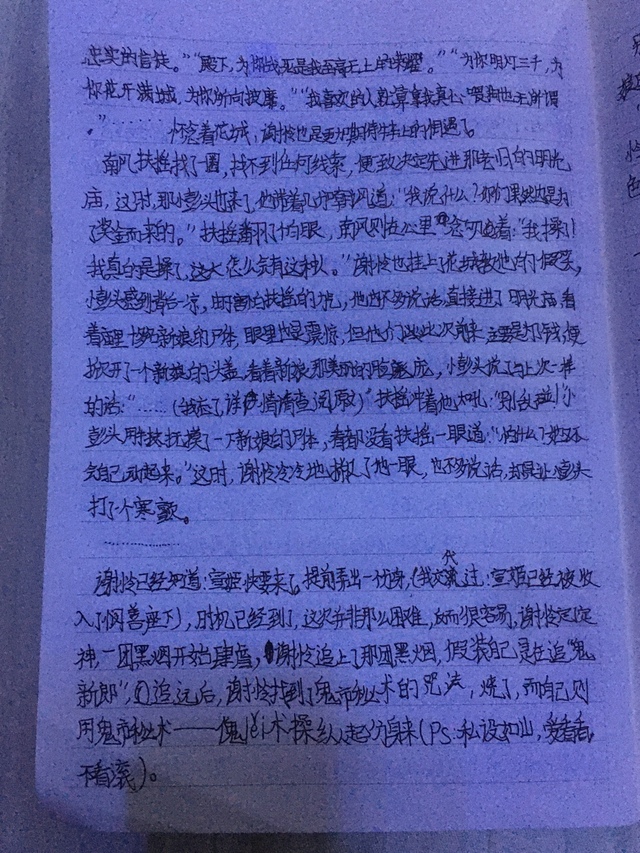 忠实的信徒。”“殿下，为你战死是我至高无上的荣耀。”“为你明灯三千，为
你花开满城，为你所向披靡。”“我喜欢的人就算拿我真心喂狗也无所谓
。”……怀念着花城，谢怜也是更加期待牛车上的相遇了。
南风扶摇找了一圈，找不到任何线索，便一致决定先进那去旧的明光
庙，这时，那小彭头也来了，他带着几个看客闯道：“我说什么？你们果然也是为
了奖金而来的。”扶摇翻了个白眼，南风则在心里念叨着：“我操了！
我真的是操了，这太怎么会有这种人。”谢怜也挂上了花城教他的假笑，
小彭头感到背后一凉，由于害怕扶摇的，他也不多说话，直接进了明光庙，看
着庙里十七个新娘的尸体，眼里也是震惊，但他们此次前来主要是打钱，便
掀开了一个新娘的头盖，看着新娘那美丽的脸庞，小彭头说了与上次一样
的话：“……（我忘了详情请查阅原）”扶摇冲着他大吼：“别乱碰！”小
彭头用扶抚摸了一下新娘的尸体，看都没看扶摇一眼道：“怕什么？她还
会自己动起来。”这时，谢怜冷冷地撇了他一眼，也不多说话，却是让小彭头
打了个寒颤。
…………
谢怜已经知道：宣姬快要来了，提前弄出一份身，（我交代注：宣姬已经被收
入了阿善座下），时机已经到了，这次并非那么困难，反而很容易，谢怜定定
神，一团黑烟开始肆虐，谢怜追上了那团黑烟，假装自己是在追“鬼
新郎”，追远后，谢怜找到了鬼市秘术的咒法，烧了，而自己则
用鬼市秘术——傀儡术操纵起分身来（Ps：私设如山，爱看看，
不看滚）。